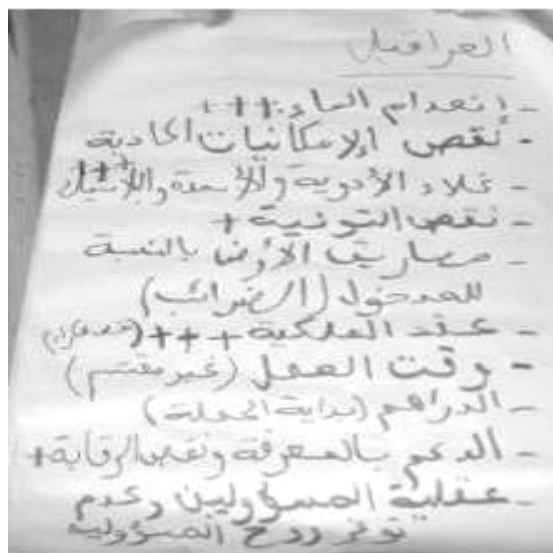 العراقيل
- انعدام الماء +++
- نقص الإمكانيات المادية
- غلاء الأدوية والأسمدة والبلاستيك +++
- نقص التوعية +
- مصاريف الأرض بالنسبة
للمدخول (الضرائب)
- عقد الملكية +++
- وقت العمل (غير مقسم)
- الدراهم (بداية الحملة)
- الدعم بالمعرفة ونقص الرقابة +
- عقلية المسؤولين وعدم
توفر روح المسؤولية